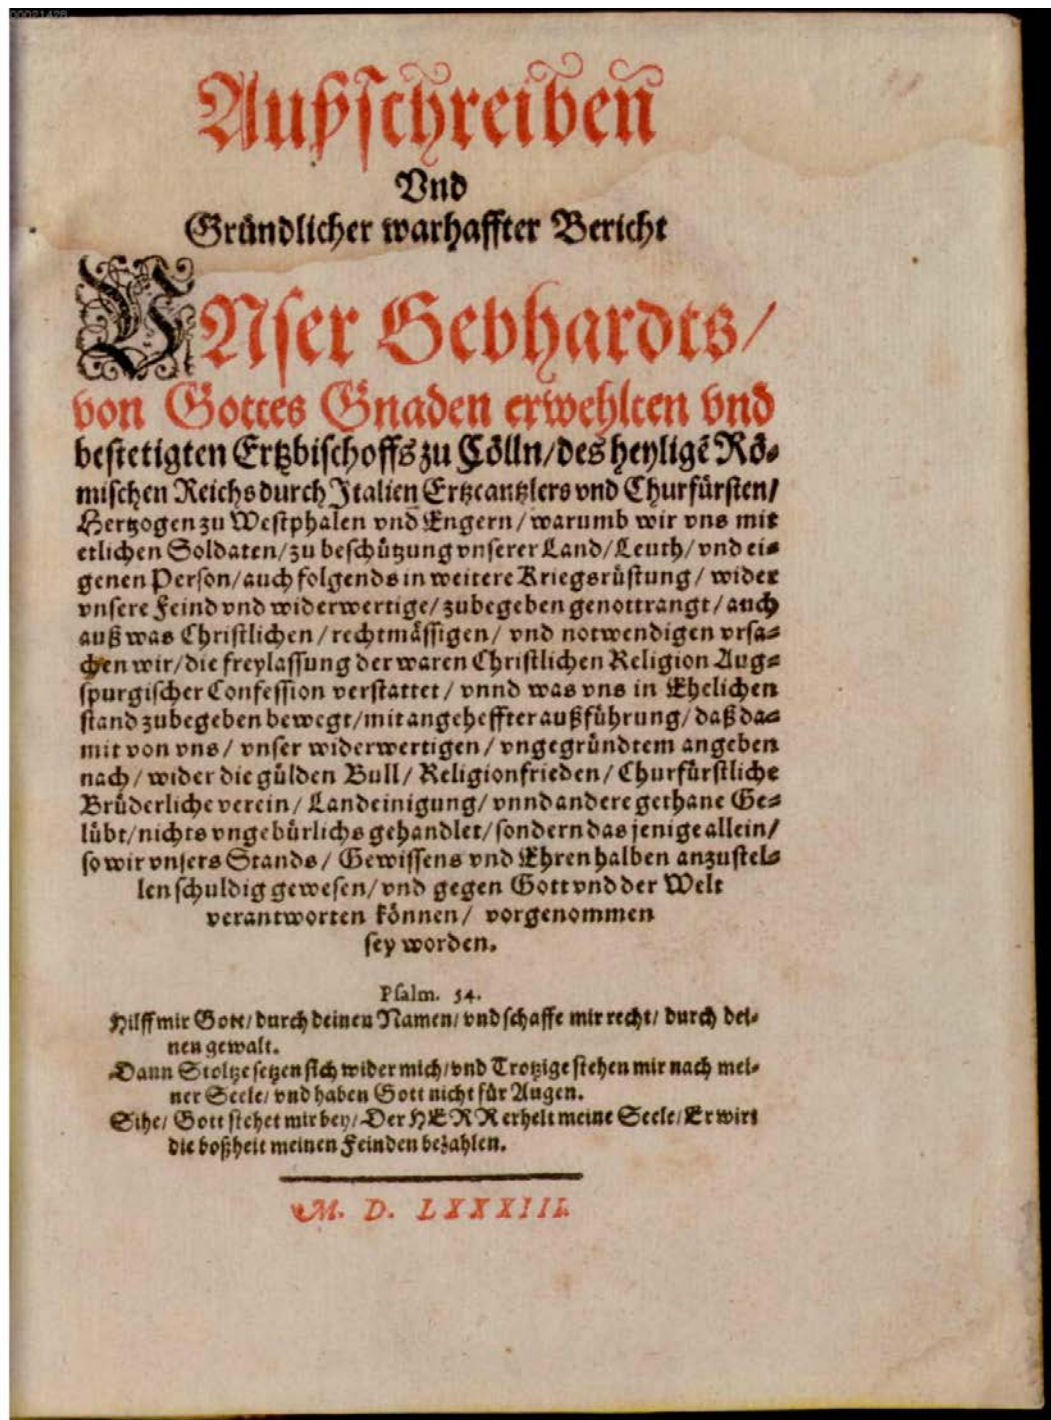 00021428
Außschreiben
Vnd
Gründlicher warhaffter Bericht
VNser Gebhardts/
von Gottes Gnaden erwehlten vnd
bestetigten Ertzbischoffs zu Cölln/des heyligẽ Rö-
mischen Reichs durch Italien Ertzcantzlers vnd Churfürsten/
Hertzogen zu Westphalen vnd Engern/warumb wir vns mit
etlichen Soldaten/zu beschützung vnserer Land/Leuth/vnd ei-
genen Person/auch folgends in weitere Kriegsrüstung/ wider
vnsere Feind vnd widerwertige/zubegeben genottrangt/auch
auß was Christlichen/rechtmässigen/ vnd notwendigen vrsa-
chen wir/die freylassung der waren Christlichen Religion Aug-
spurgischer Confession verstattet/ vnnd was vns in Ehelichen
stand zubegeben bewegt/mit angeheffter außführung/daß da-
mit von vns/ vnser widerwertigen/vngegründtem angeben
nach/wider die gülden Bull/ Religionfrieden/Churfürstliche
Brüderliche verein/ Landeinigung/vnnd andere gethane Ge-
lübt/nichts vngebürlichs gehandlet/sondern das jenige allein/
so wir vnsers Stands/ Gewissens vnd Ehren halben anzustel-
len schuldig gewesen/vnd gegen Gott vnd der Welt
verantworten können/ vorgenommen
sey worden.
Psalm. 54.
Hilff mir Gott/durch deinen Namen/vnd schaffe mir recht/ durch dei-
nen gewalt.
Dann Stoltze setzen sich wider mich/vnd Trotzige stehen mir nach mei-
ner Seele/ vnd haben Gott nicht für Augen.
Sihe/ Gott stehet mir bey/Der HERR erhelt meine Seele/Er wirt
die boßheit meinen Feinden bezahlen.
M. D. LXXXIII.